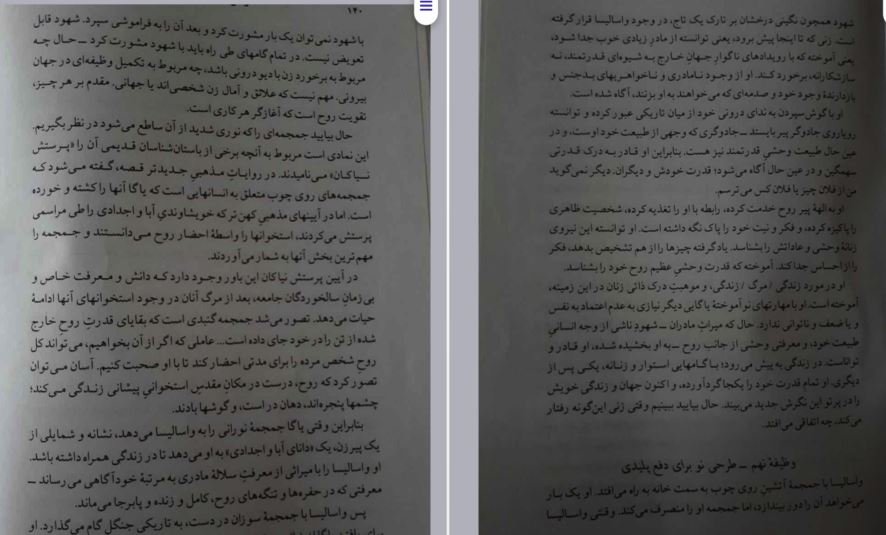 ۱۴۰
با شهود نمی‌توان یک بار مشورت کرد و بعد آن را به فراموشی سپرد. شهود قابل
تعویض نیست. در تمام گامهای طی راه باید با شهود مشورت کرد ــ حال چه
مربوط به برخورد زن با دیو درونی باشد، چه مربوط به تکمیل وظیفه‌ای در جهان
بیرونی. مهم نیست که علائق و آمال زن شخصی‌اند یا جهانی. مقدم بر هر چیز،
تقویت روح است که آغازگر هر کاری است.
حال بیایید جمجمه‌ای را که نوری شدید از آن ساطع می‌شود در نظر بگیریم.
این نمادی است مربوط به آنچه برخی از باستان‌شناسان قدیمی آن را «پرستش
نیاکان» می‌نامیدند. در روایات مذهبی جدیدتر قصه، گفته می‌شود که
جمجمه‌های روی چوب متعلق به انسانهایی است که یاگا آنها را کشته و خورده
است. اما در آیینهای مذهبی کهن‌تر که خویشاوندی آبا و اجدادی را طی مراسمی
پرستش می‌کردند، استخوانها را واسطهٔ احضار روح می‌دانستند و جمجمه را
مهم‌ترین بخش آنها به شمار می‌آوردند.
در آیین پرستش نیاکان این باور وجود دارد که دانش و معرفت خاص و
بی‌زمان سالخوردگان جامعه، بعد از مرگ آنان در وجود استخوانهای آنها ادامهٔ
حیات می‌دهد. تصور می‌شد جمجمه گنبدی است که بقایای قدرتِ روح خارج
شده از تن را در خود جای داده است... عاملی که اگر از آن بخواهیم، می‌تواند کل
روح شخص مرده را برای مدتی احضار کند تا با او صحبت کنیم. آسان می‌توان
تصور کرد که روح، درست در مکان مقدسِ استخوانیِ پیشانی زندگی می‌کند؛
چشمها پنجره‌اند، دهان در است، و گوشها بادند.
بنابراین وقتی یاگا جمجمهٔ نورانی را به واسالیسا می‌دهد، نشانه و شمایلی از
یک پیرزن، یک «دانای آبا و اجدادی» به او می‌دهد تا در زندگی همراه داشته باشد.
او واسالیسا را با میراثی از معرفتِ سلالهٔ مادری به مرتبهٔ خودآگاهی می‌رساند ــ
معرفتی که در حفره‌ها و تنگه‌های روح، کامل و زنده و پابرجا می‌ماند.
پس واسالیسا با جمجمهٔ سوزان در دست، به تاریکی جنگل گام می‌گذارد. او
شهود همچون نگینی درخشان بر تارک یک تاج، در وجود واسالیسا قرار گرفته
است. زنی که تا اینجا پیش برود، یعنی توانسته از مادرِ زیادی خوب جدا شود،
یعنی آموخته که با رویدادهای ناگوار جهان خارج به شیوه‌ای قدرتمند، نه
سازشکارانه، برخورد کند. او از وجود نامادری و ناخواهریهای بدجنس و
بازدارندهٔ وجود خود و صدمه‌ای که می‌خواهند به او بزنند، آگاه شده است.
او با گوش سپردن به ندای درونی خود از میان تاریکی عبور کرده و توانسته
رویاروی جادوگر پیر بایستد ــ جادوگری که وجهی از طبیعت خود اوست، و در
عین حال طبیعت وحشیِ قدرتمند نیز هست. بنابراین او قادر به درک قدرتی
سهمگین و در عین حال آگاه می‌شود؛ قدرت خودش و دیگران. دیگر نمی‌گوید
من از فلان چیز یا فلان کس می‌ترسم.
او به الههٔ پیر روح خدمت کرده، رابطه با او را تغذیه کرده، شخصیت ظاهری
را پاکیزه کرده، و فکر و نیت خود را پاک نگه داشته است. او توانسته این نیروی
زنانهٔ وحشی و عاداتش را بشناسد. یاد گرفته چیزها را از هم تشخیص بدهد، فکر
را از احساس جدا کند. آموخته که قدرت وحشی عظیم روح خود را بشناسد.
او در مورد زندگی / مرگ / زندگی، و موهبتِ درک ذاتی زنان در این زمینه،
آموخته است. او با مهارتهای نو آموختهٔ یاگایی دیگر نیازی به عدم اعتماد به نفس
و یا ضعف و ناتوانی ندارد. حال که میراثِ مادران ــ شهودِ ناشی از وجه انسانیِ
طبیعت خود، و معرفتی وحشی از جانب روح ــ به او بخشیده شده، او قادر و
تواناست. در زندگی به پیش می‌رود؛ با گامهایی استوار و زنانه، یکی پس از
دیگری. او تمام قدرت خود را یکجا گرد آورده، و اکنون جهان و زندگی خویش
را در پرتو این نگرش جدید می‌بیند. حال بیایید ببینیم وقتی زنی این‌گونه رفتار
می‌کند، چه اتفاقی می‌افتد.
وظیفهٔ نهم ــ طرحی نو برای دفع پلیدی
واسالیسا با جمجمهٔ آتشین روی چوب به سمت خانه به راه می‌افتد. او یک بار
می‌خواهد آن را دور بیندازد، اما جمجمه او را منصرف می‌کند. وقتی واسالیسا